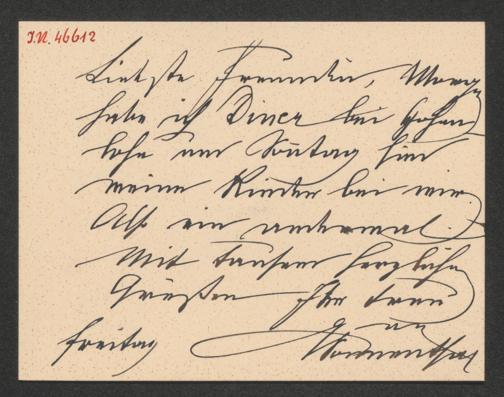 I.N. 46612
Liebste Freundin, Morgen
habe ich Diner bei Hohen
lohe am Sontag sind
meine Kinder bei mir.
Also ein andermal.
Mit tausend herzlichen
Grüßen Ihr treu
Freitag Sonnenthal